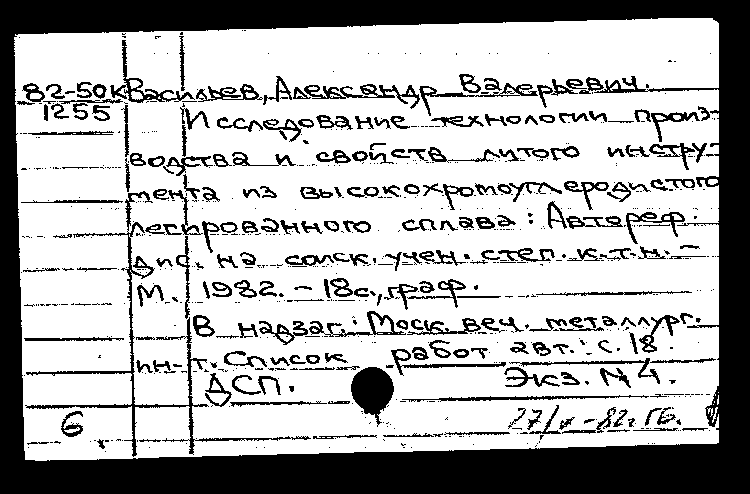 82-50К Васильев, Александр Валерьевич.
1255 Исследование технологии произ-
водства и свойств литого инстру-
мента из высокохромоуглеродистого
легированного сплава: Автореф.
дис. на соиск. учен. степ. к.т.н. –
М. 1982. – 18с., граф.
В надзаг.: Моск. веч. металлург.
ин-т. Список работ авт.: с. 18.
ДСП. Экз. №4.
6 27/ -82г. ГБ.